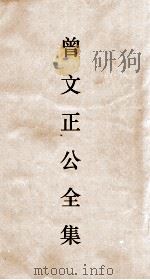 曾文正公全集
mtoou.info